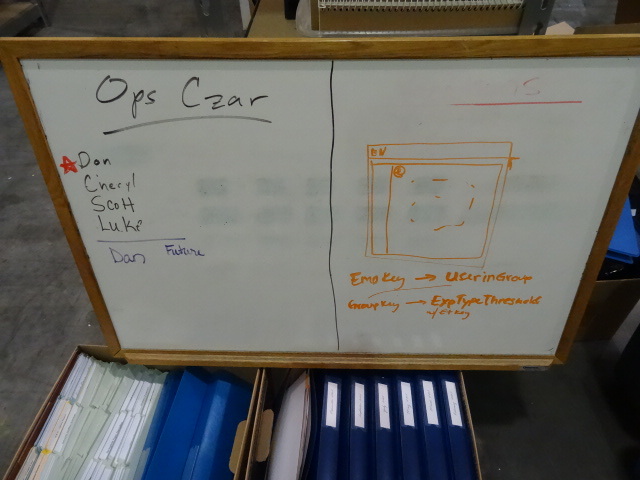 Ops Czar
Don
Cheryl
Scott
Luke
Dan Future
EmpKey → UserinGroup
GroupKey → ExpTypeThreshold